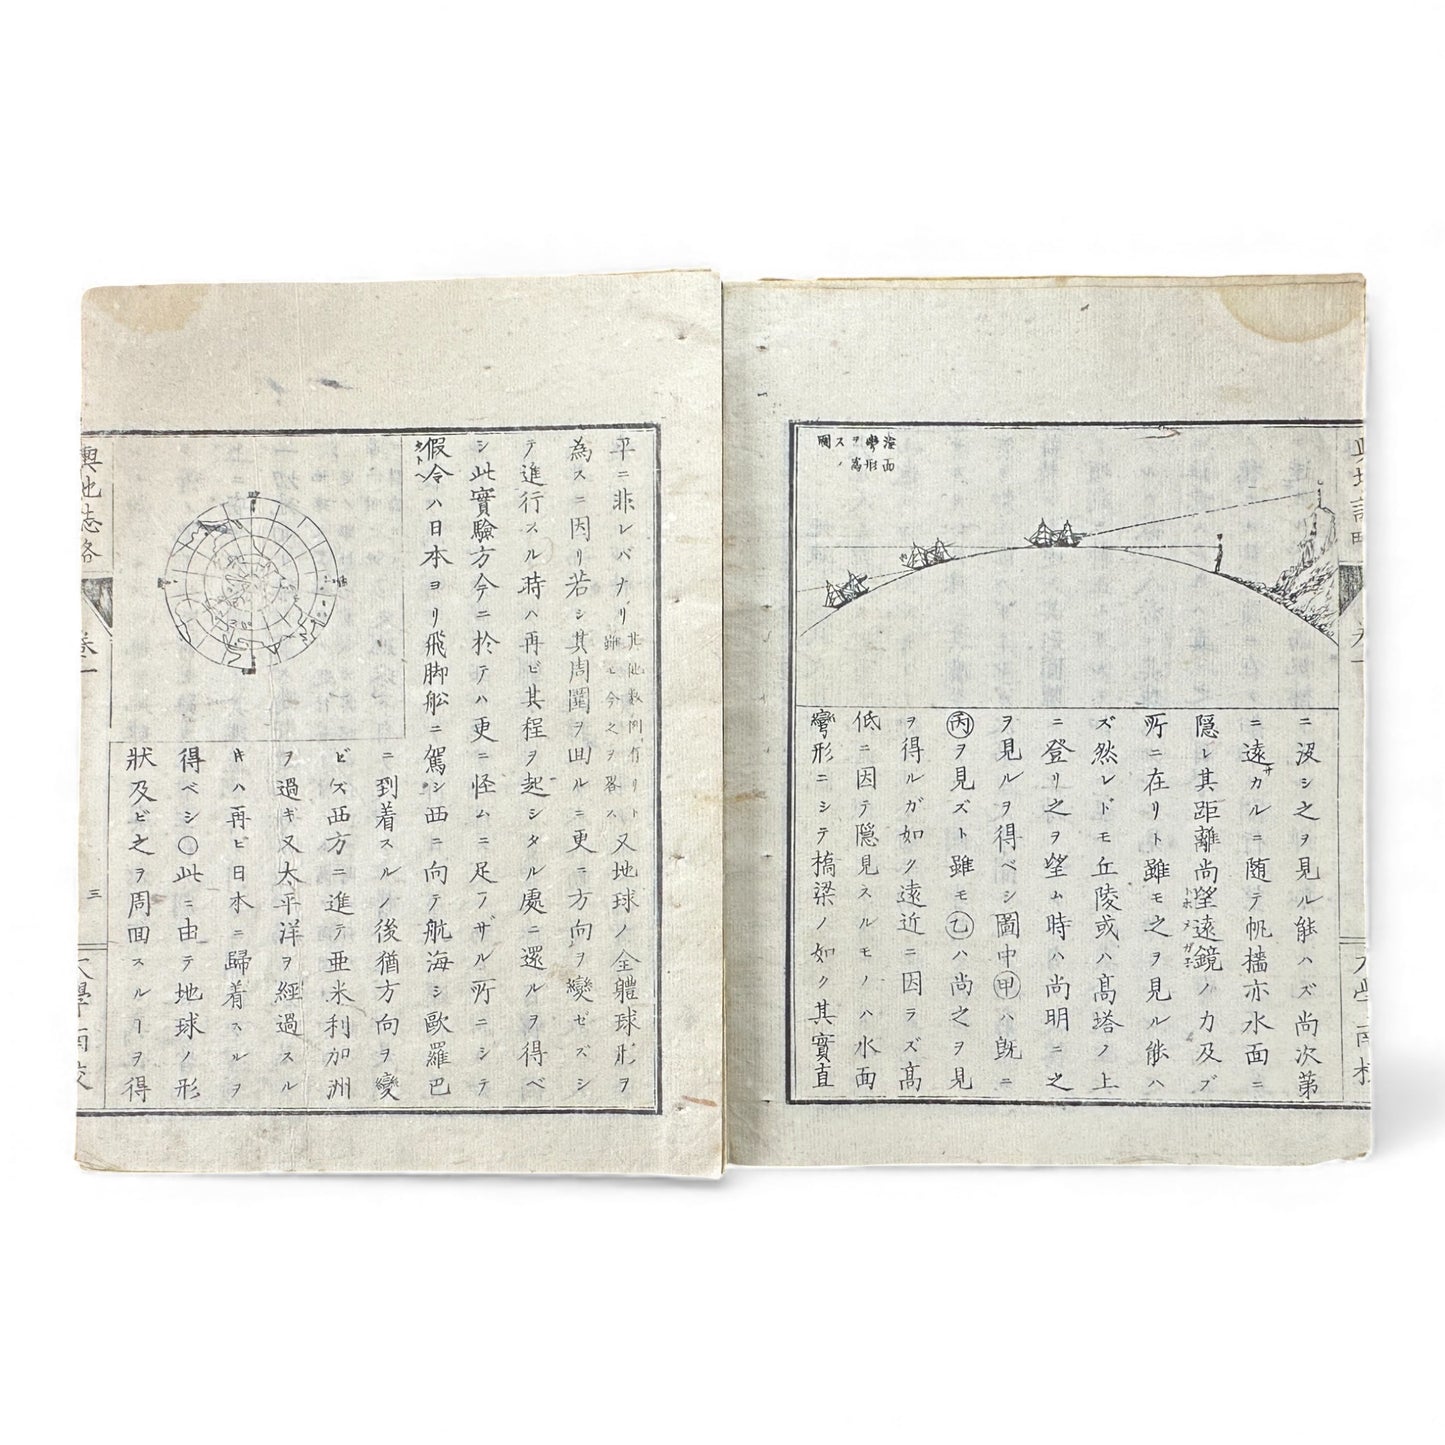 海面
彎形
ヲ爲
スノ
圖
ニ沒シ之ヲ見ル能ハズ尚次第
ニ遠サカルニ随テ帆檣亦水面ニ
隠レ其距離尚望遠鏡ノ力及ブ
所ニ在リト雖モ之ヲ見ル能ハ
ズ然レドモ丘陵或ハ髙塔ノ上
ニ登リ之ヲ望ム時ハ尚明ニ之
ヲ見ルヲ得ベシ圖中甲ハ旣ニ
丙ヲ見ズト雖モ乙ハ尚之ヲ見
ヲ得ルガ如ク遠近ニ因ラズ髙
低ニ因テ隠見スルモノハ水面
彎形ニシテ橋梁ノ如ク其實直
平ニ非レバナリ其他数例有リト雖モ今之ヲ畧ス又地球ノ全軆球形ヲ
為スニ因リ若シ其周圍ヲ囬ルニ更ニ方向ヲ變ゼズシ
テ進行スル時ハ再ビ其程ヲ起シタル處ニ還ルヲ得ベ
シ此實驗方今ニ於テハ更ニ怪ムニ足アザル所ニシテ
假令ハ日本ヨリ飛脚舩ニ駕シ西ニ向テ航海シ歐羅巴
ニ到着スルノ後猶方向ヲ變
ビズ西方ニ進テ亜米利加洲
ヲ過ギ又太平洋ヲ經過スル
片ハ再ビ日本ニ歸着スルヲ
得ベシ〇此ニ由テ地球ノ形
狀及ビ之ヲ周囬スルヿヲ得
輿地志畧
卷一
三
大學南校